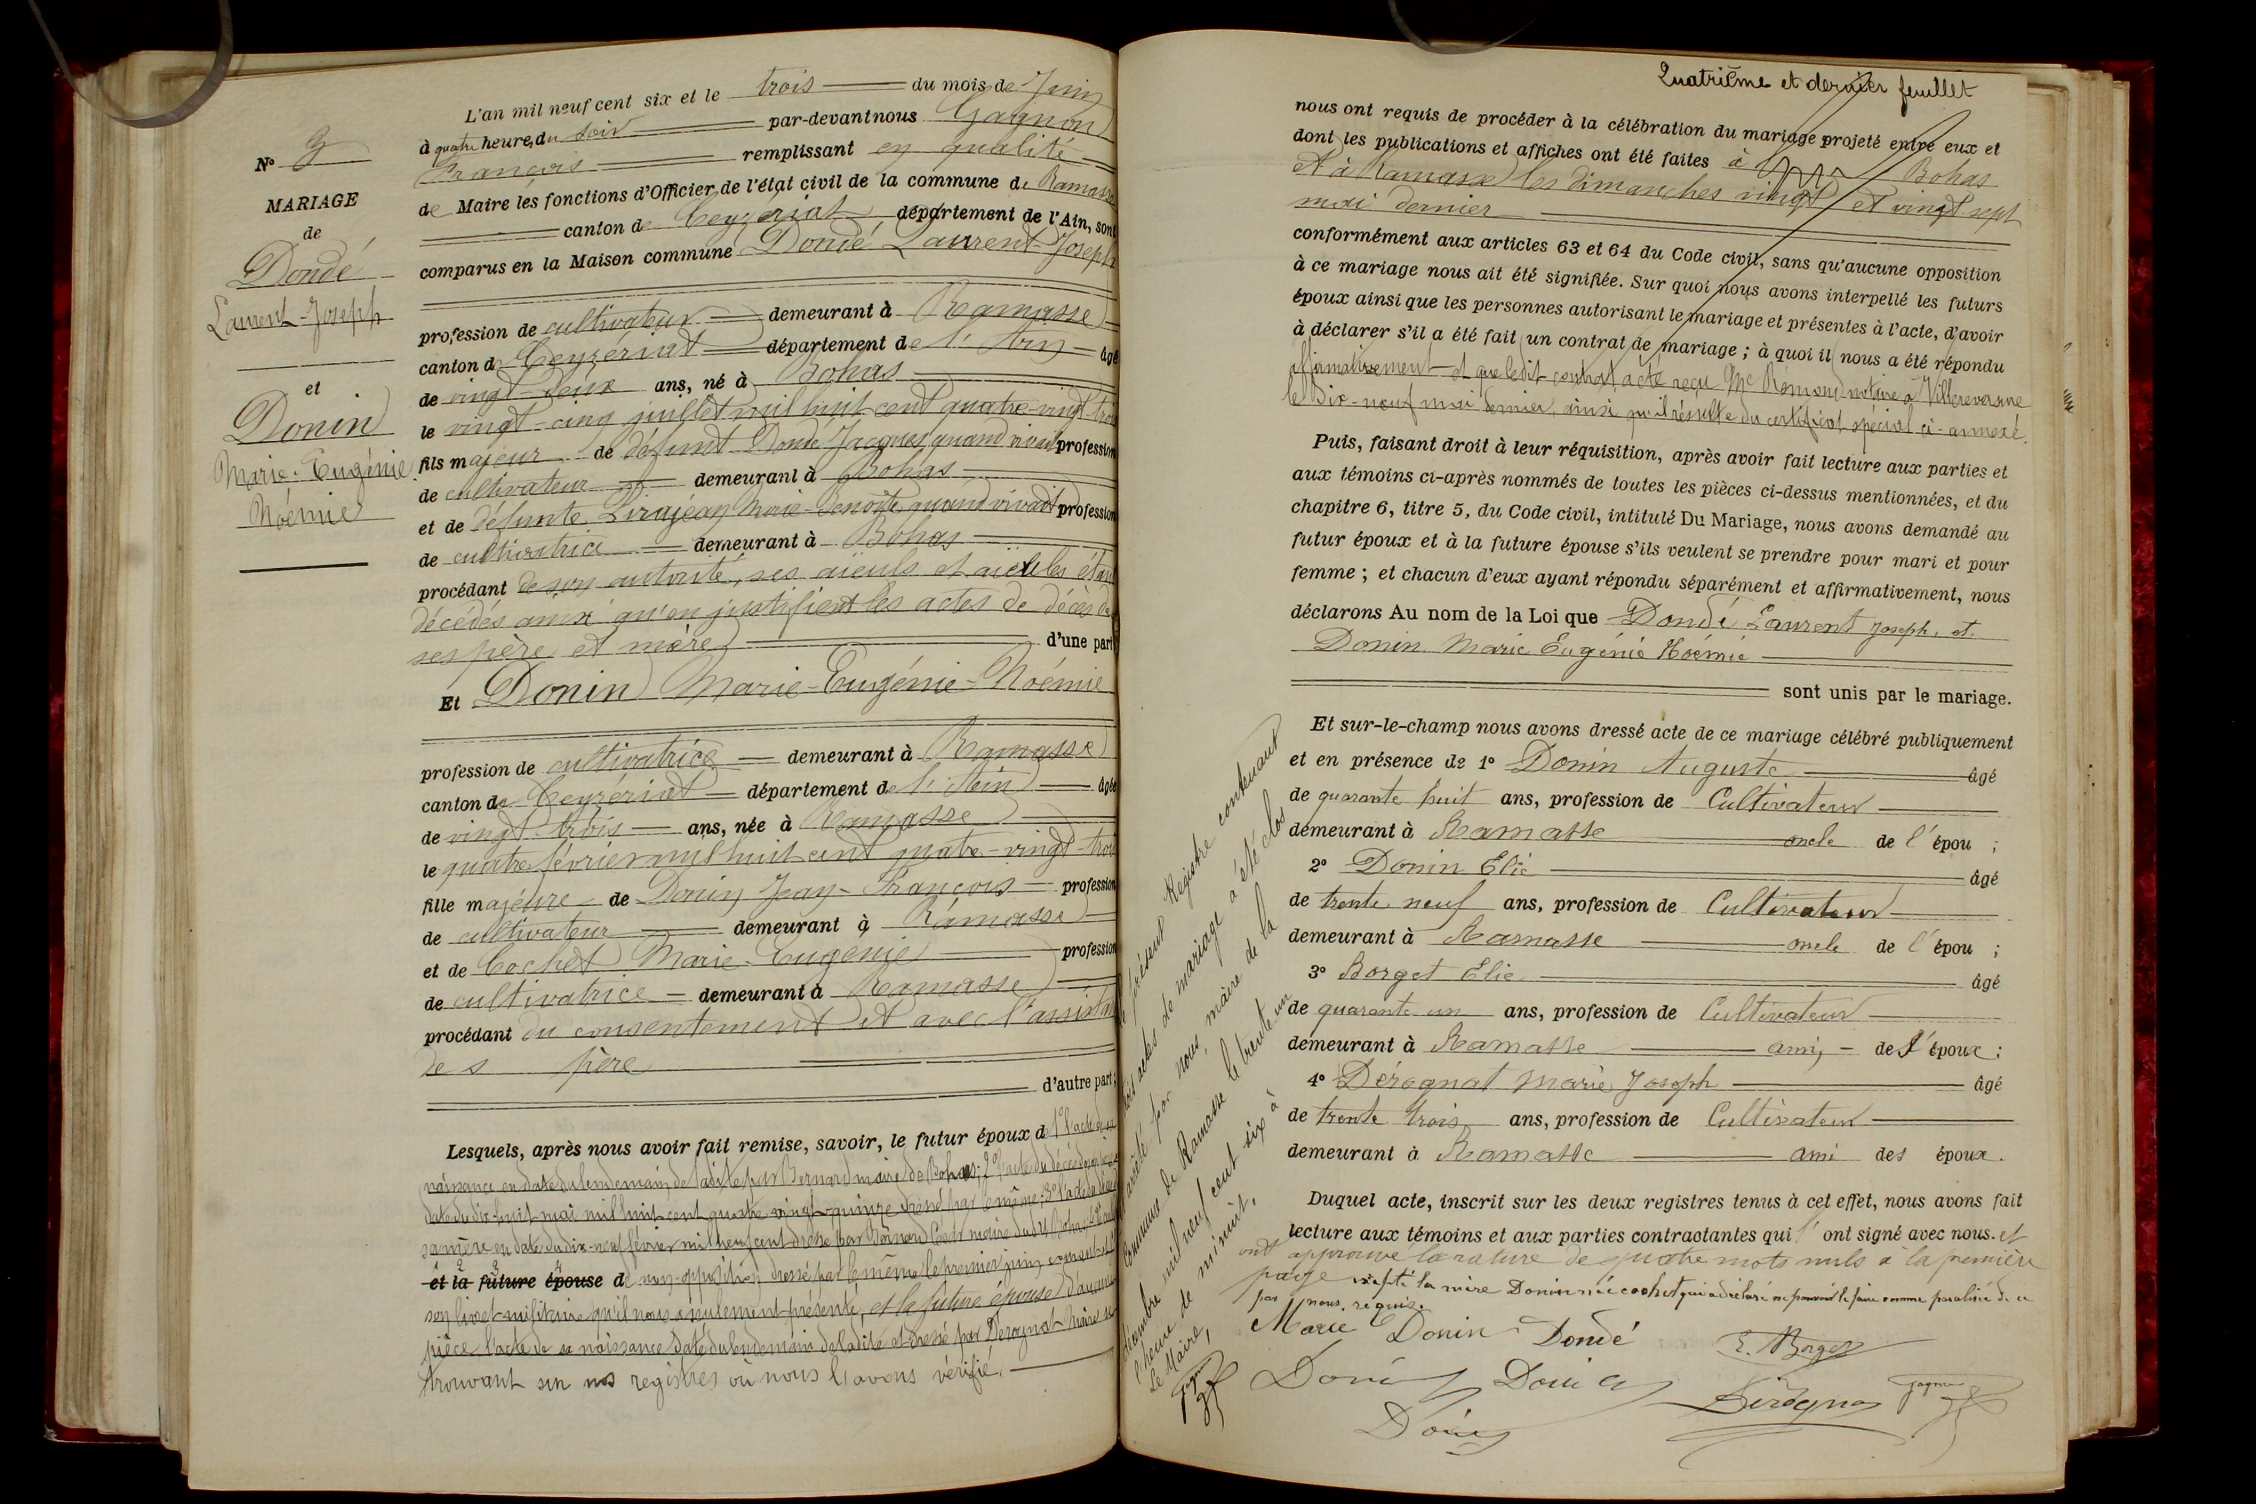 N° 3
MARIAGE
de
Dondé
Laurent-Joseph
et
Donin
Marie-Eugénie
Noémie
L'an mil neuf cent six et le trois du mois de Juin
à quatre heure, du soir par-devant nous Gagnon
François remplissant en qualité
de Maire les fonctions d'Officier de l'état civil de la commune de Ramasse
canton de Ceyzériat département de l'Ain, sont
comparus en la Maison commune Dondé Laurent-Joseph
profession de cultivateur demeurant à Ramasse
canton de Ceyzériat département de l'Ain âgé
de vingt-deux ans, né à Bohas
le vingt-cinq juillet mil huit cent quatre-vingt-trois
fils majeur de défunt Dondé Jacques quand vivait profession
de cultivateur demeurant à Bohas
et de défunte Marie-Benoîte quand vivait profession
de cultivatrice demeurant à Bohas
procédant de son autorité, ses aïeuls et aïeules étant
décédés ainsi qu'en justifient les actes de décès de
ses père et mère d'une part
Et Donin Marie-Eugénie-Noémie
profession de cultivatrice demeurant à Ramasse
canton de Ceyzériat département de l'Ain âgée
de vingt-trois ans, née à Ramasse
le quatre février mil huit cent quatre-vingt-trois
fille majeure de Donin Jean-François profession
de cultivateur demeurant à Ramasse
et de Cochet Marie-Eugénie profession
de cultivatrice demeurant à Ramasse
procédant du consentement et avec l'assistance
de s père
d'autre part;
Lesquels, après nous avoir fait remise, savoir, le futur époux de 1° l'acte de sa
naissance en date du lendemain de ladite par Bernard maire de Bohas; 2° l'acte du décès de
date du dix-huit mai mil huit cent quatre vingt-quinze dressé par le même; 3° l'acte de décès de
sa mère en date du dix-neuf février mil neuf cent dressé par Bernard maire dudit Bohas
et la future épouse de non-opposition dressé par le même le premier juin
son livret militaire qu'il nous a également présenté, et la future épouse d'aucune
pièce l'acte de sa naissance daté du lendemain de ladite et dressé par Dérognat Maire se
trouvant sur nos registres où nous l'avons vérifié.
Quatrième et dernier feuillet
nous ont requis de procéder à la célébration du mariage projeté entre eux et
dont les publications et affiches ont été faites à Bohas
et à Ramasse les dimanches vingt et vingt-sept
mai dernier
conformément aux articles 63 et 64 du Code civil, sans qu'aucune opposition
à ce mariage nous ait été signifiée. Sur quoi nous avons interpellé les futurs
époux ainsi que les personnes autorisant le mariage et présentes à l'acte, d'avoir
à déclarer s'il a été fait un contrat de mariage; à quoi il nous a été répondu
affirmativement et que ledit contrat a été reçu Me Rémond notaire à Villereversure
le dix-neuf mai dernier, ainsi qu'il résulte du certificat spécial ci-annexé.
Puis, faisant droit à leur réquisition, après avoir fait lecture aux parties et
aux témoins ci-après nommés de toutes les pièces ci-dessus mentionnées, et du
chapitre 6, titre 5, du Code civil, intitulé Du Mariage, nous avons demandé au
futur époux et à la future épouse s'ils veulent se prendre pour mari et pour
femme; et chacun d'eux ayant répondu séparément et affirmativement, nous
déclarons Au nom de la Loi que Dondé Laurent Joseph, et
Donin Marie Eugénie Noémie
sont unis par le mariage.
Et sur-le-champ nous avons dressé acte de ce mariage célébré publiquement
et en présence de 1° Donin Auguste âgé
de quarante huit ans, profession de Cultivateur
demeurant à Ramasse oncle de l'épou ;
2° Donin Elie âgé
de trente neuf ans, profession de Cultivateur
demeurant à Ramasse oncle de l'épou ;
3° Borget Elie âgé
de quarante un ans, profession de Cultivateur
demeurant à Ramasse ami, de l'époux;
4° Dérognat Marie Joseph âgé
de trente trois ans, profession de Cultivateur
demeurant à Ramasse ami des époux.
Duquel acte, inscrit sur les deux registres tenus à cet effet, nous avons fait
lecture aux témoins et aux parties contractantes qui l'ont signé avec nous. et
ont approuvé la rature de quatre mots nuls à la première
page excepté la mère Donin née Cochet qui a déclaré ne pouvoir le faire comme paralisée de ce
par nous requise.
Marie Donin Dondé E. Borget
Donin Donin Dérognat Gagnon
Donin
Le présent Registre contenant
trois actes de mariage a été clos
arrêté par nous, maire de la
Commune de Ramasse le trente un
décembre mil neuf cent six à
l'heure de minuit.
Le Maire,
Gagnon